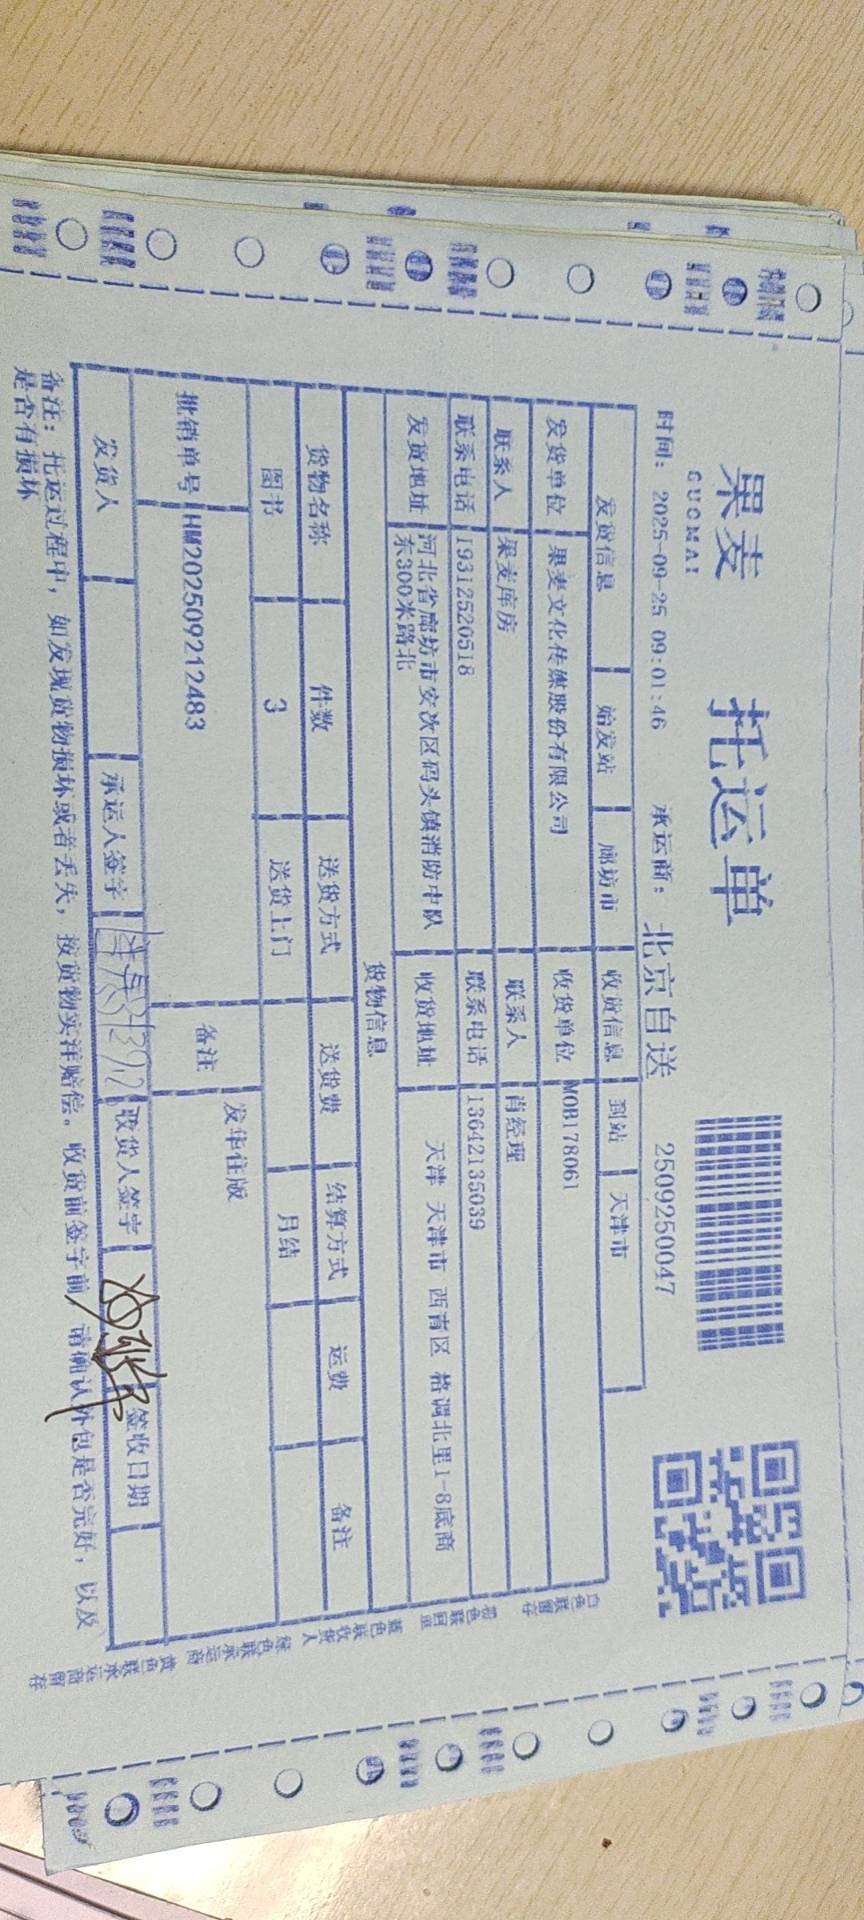 果麦
GUOMAI
托运单
时间： 2025-09-25 09:01:46 承运商： 北京自送 2509250047
发货信息 始发站 廊坊市 收货信息 到站 天津市
发货单位 果麦文化传媒股份有限公司 收货单位 MOB178061
联系人 果麦库房 联系人 肖经理
联系电话 19312520518 联系电话 13642135039
发货地址 河北省廊坊市安次区码头镇消防中队东300米路北 收货地址 天津 天津市 西青区 格调北里1-8底商
货物信息
货物名称 件数 送货方式 送货费 结算方式 运费 备注
图书 3 送货上门 月结
批销单号 HM202509212483 备注 发华住版
发货人 承运人签字 收货人签字 签收日期
备注：托运过程中，如发现货物损坏或者丢失，按货物实洋赔偿。收货前签字前，请确认外包是否完好，以及
是否有损坏
白色联留存
粉色联回单
蓝色联收货人
绿色联承运商
黄色联承运商留存